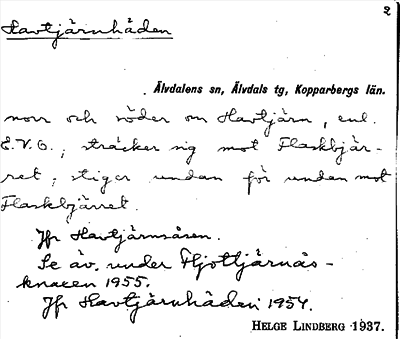 2
Havtjärnhåden
Älvdalens sn, Älvdals tg, Kopparbergs län.
norr och söder om Havtjärn, enl.
E.V.O.; sträcker sig mot Flaskbjär-
ret; stiger undan för undan mot
Flaskbjärret.
Jfr Havtjärnsåsen.
Se äv. under Fljottjärnås-
knallen 1955.
Jfr Havtjärnhåden 1954.
HELGE LINDBERG 1937.